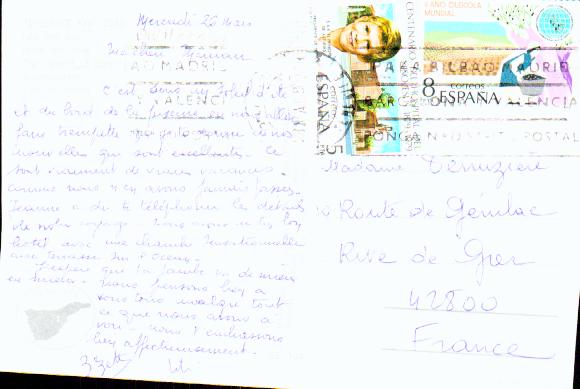 Mercredi 26 Mars
Maman
C'est sous un soleil d'été
et du bord de la piscine où nous allons
faire trempette que je te donne de nos
nouvelles qui sont excellentes. Ce
sont vraiment de vraies vacances
comme nous n'en avons jamais passées.
Jeanne a dû te téléphoner les détails
de notre voyage. Nous avons un très bon
hôtel avec une chambre
avec terrasse sur l'Océan.
J'espère que ta jambe va de mieux
en mieux. Nous pensons bien à
vous tous malgré tout
ce que nous avons à
voir. Nous t'embrassons
bien affectueusement.
AÑO OLEICOLA
MUNDIAL
CENTENARIO
8
CORREOS
ESPAÑA
ESPAÑA
5
BILBAO MADRID
VALENCIA
POSTAL
MADRID
VALENCI
Madame
Route de Génilac
Rive de Gier
42800
France